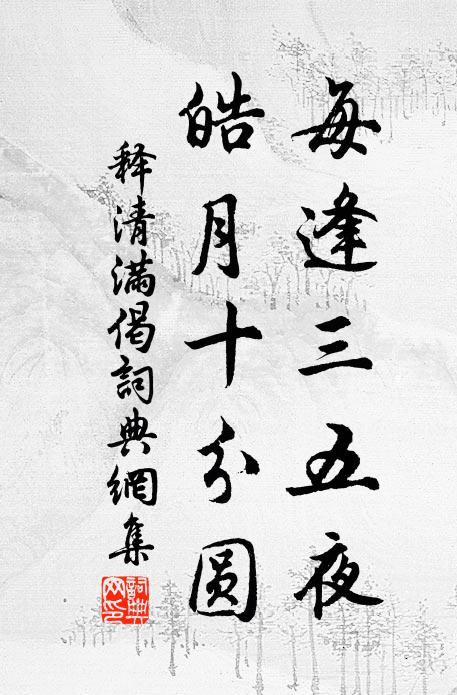 每逢三五夜
皓月十分圆
释清满偈詞典網集
詞典
文印